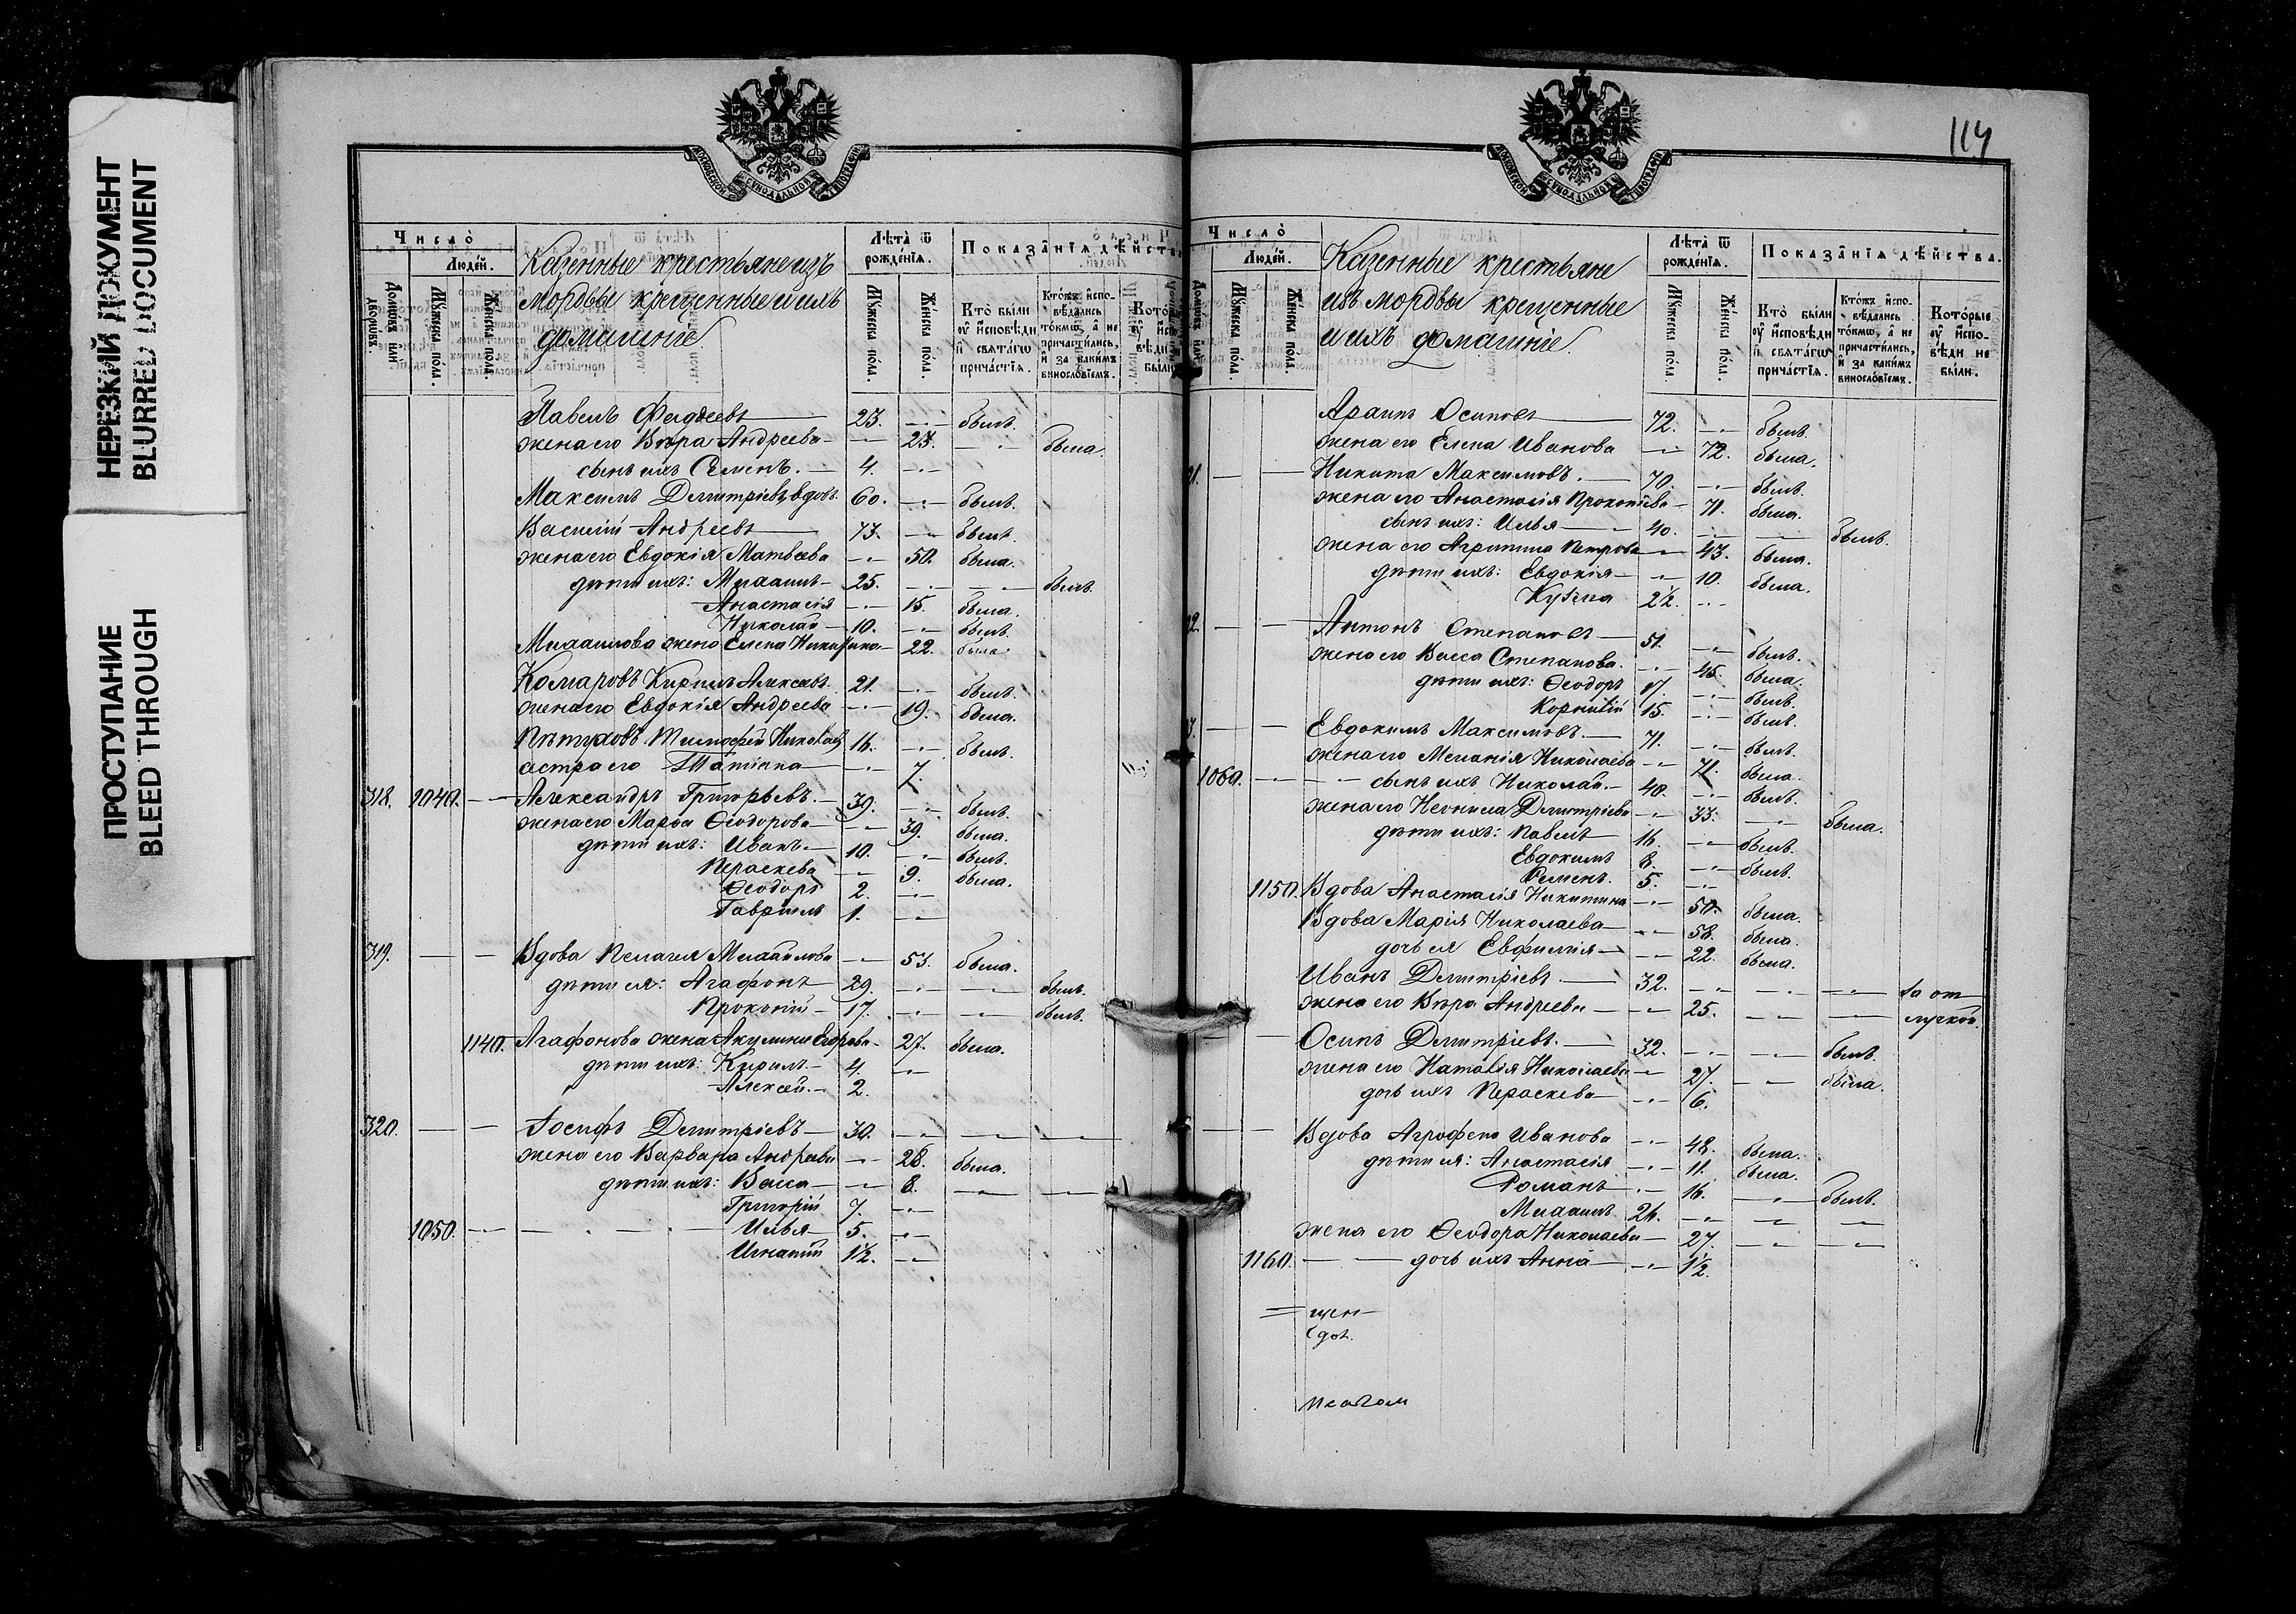 НЕРЕЗКИЙ ДОКУМЕНТ
BLURRED DOCUMENT
ПРОСТУПАНИЕ
BLEED THROUGH
МОСКОВСКОЙ СѴНОДАЛЬНОЙ ТИПОГРАФІИ
Число̀
Людей.
Домовъ или дворовъ.
Мꙋжеска пола.
Женска пола.
Казенные крестьяне изъ
мордвы крещенные и ихъ
домашніе.
Лѣта̀ ѿ рожденїя.
Мꙋжеска пола.
Женска пола.
Показанїя дѣйств
Кто̀ были оу҆ и҆сповѣди и҆ свята́гѡ прича́стїя.
Кто́жъ и҆спо-вѣдались то́кмѡ, а҆ не причастились, и҆ за какимъ винословїемъ.
Павелъ Фаддеевъ 23. былъ.
жена его Вѣра Андреева 23. была.
сынъ ихъ Семенъ. 4.
Максимъ Димитріевъ вдовъ 60. былъ.
Василій Андреевъ 73. былъ.
жена его Евдокія Матвѣева 50. была.
дѣти ихъ: Михаилъ 25. былъ.
Анастасія 15. была.
Николай 10. былъ.
Михаилова жена Елена Никифорова 22. была
Комаровъ Кирилъ Алексѣевъ 21. былъ.
жена его Евдокія Андреева 19. была.
Пѣтуховъ Тимофей Николаевъ 16. былъ.
сестра его Татіана 7.
318. 1040. Александръ Григорьевъ. 39. былъ.
жена его Марѳа Ѳеодорова 39. была.
дѣти ихъ: Иванъ. 10. былъ.
Параскева 9. была.
Ѳеодоръ 2.
Гавріилъ 1.
319. Вдова Пелагея Михайлова 53. была.
дѣти ея: Агафонъ 29. былъ.
Прокопій 17. былъ.
1140. Агафонова жена Акулина Егорова 27. была.
дѣти ихъ: Кирилъ 4.
Алексѣй. 2.
320. Іосифъ Димитріевъ 30.
жена его Варвара Андреева 28. была.
дѣти ихъ: Васса 8.
Григорій 7.
1050. Илья 5.
Игнатій 1½.
114
МОСКОВСКОЙ СѴНОДАЛЬНОЙ ТИПОГРАФІИ
Число̀
Людей.
Мꙋжеска пола.
Женска пола.
Казенные крестьяне
изъ мордвы крещенные
и ихъ домашніе.
Лѣта̀ ѿ рожденїя.
Мꙋжеска пола.
Женска пола.
Показанїя дѣйства.
Кто̀ были оу҆ и҆сповѣди и҆ свята́гѡ прича́стїя.
Кто́жъ и҆спо-вѣдались то́кмѡ, а҆ не причастились, и҆ за какимъ винословїемъ.
Которые оу҆ и҆спо-вѣди не были.
Осиповъ 72. былъ.
жена его Елена Иванова 72. была.
21. Никита Максимовъ. 70. былъ.
жена его Анастасія Прокопіева 71. была.
сынъ ихъ: Илья 40. былъ.
жена его Агрипина Петрова 43. была.
дѣти ихъ: Евдокія 10. была.
Кузма 2½.
22. Антонъ Степановъ 51. былъ.
жена его Васса Степанова. 45. была.
дѣти ихъ: Ѳеодоръ 17. былъ.
Корнилій 15. былъ.
3. Евдокимъ Максимовъ. 71. былъ.
жена его Меланія Николаева 71. была.
1060. сынъ ихъ Николай. 40. былъ.
жена его Неонила Димитріева 33. была.
дѣти ихъ: Павелъ 16. былъ.
Евдокимъ 8. былъ.
Семенъ. 5.
1150. Вдова Анастасія Никитина 50. была.
Вдова Марія Николаева 58. была.
дочь ея Евфимія 22. была.
Иванъ Димитріевъ 32. за от
жена его Вѣра Андреева 25. лучкой.
Осипъ Димитріевъ. 32. былъ.
жена его Наталія Николаева 27. была.
дочь ихъ Параскева 6.
Вдова Аграфена Иванова 48. была.
дѣти ея: Анастасія 11. была.
Романъ 16. былъ.
Михаилъ 26.
жена его Ѳеодора Николаева 27.
1160. дочь ихъ Анна 1½.